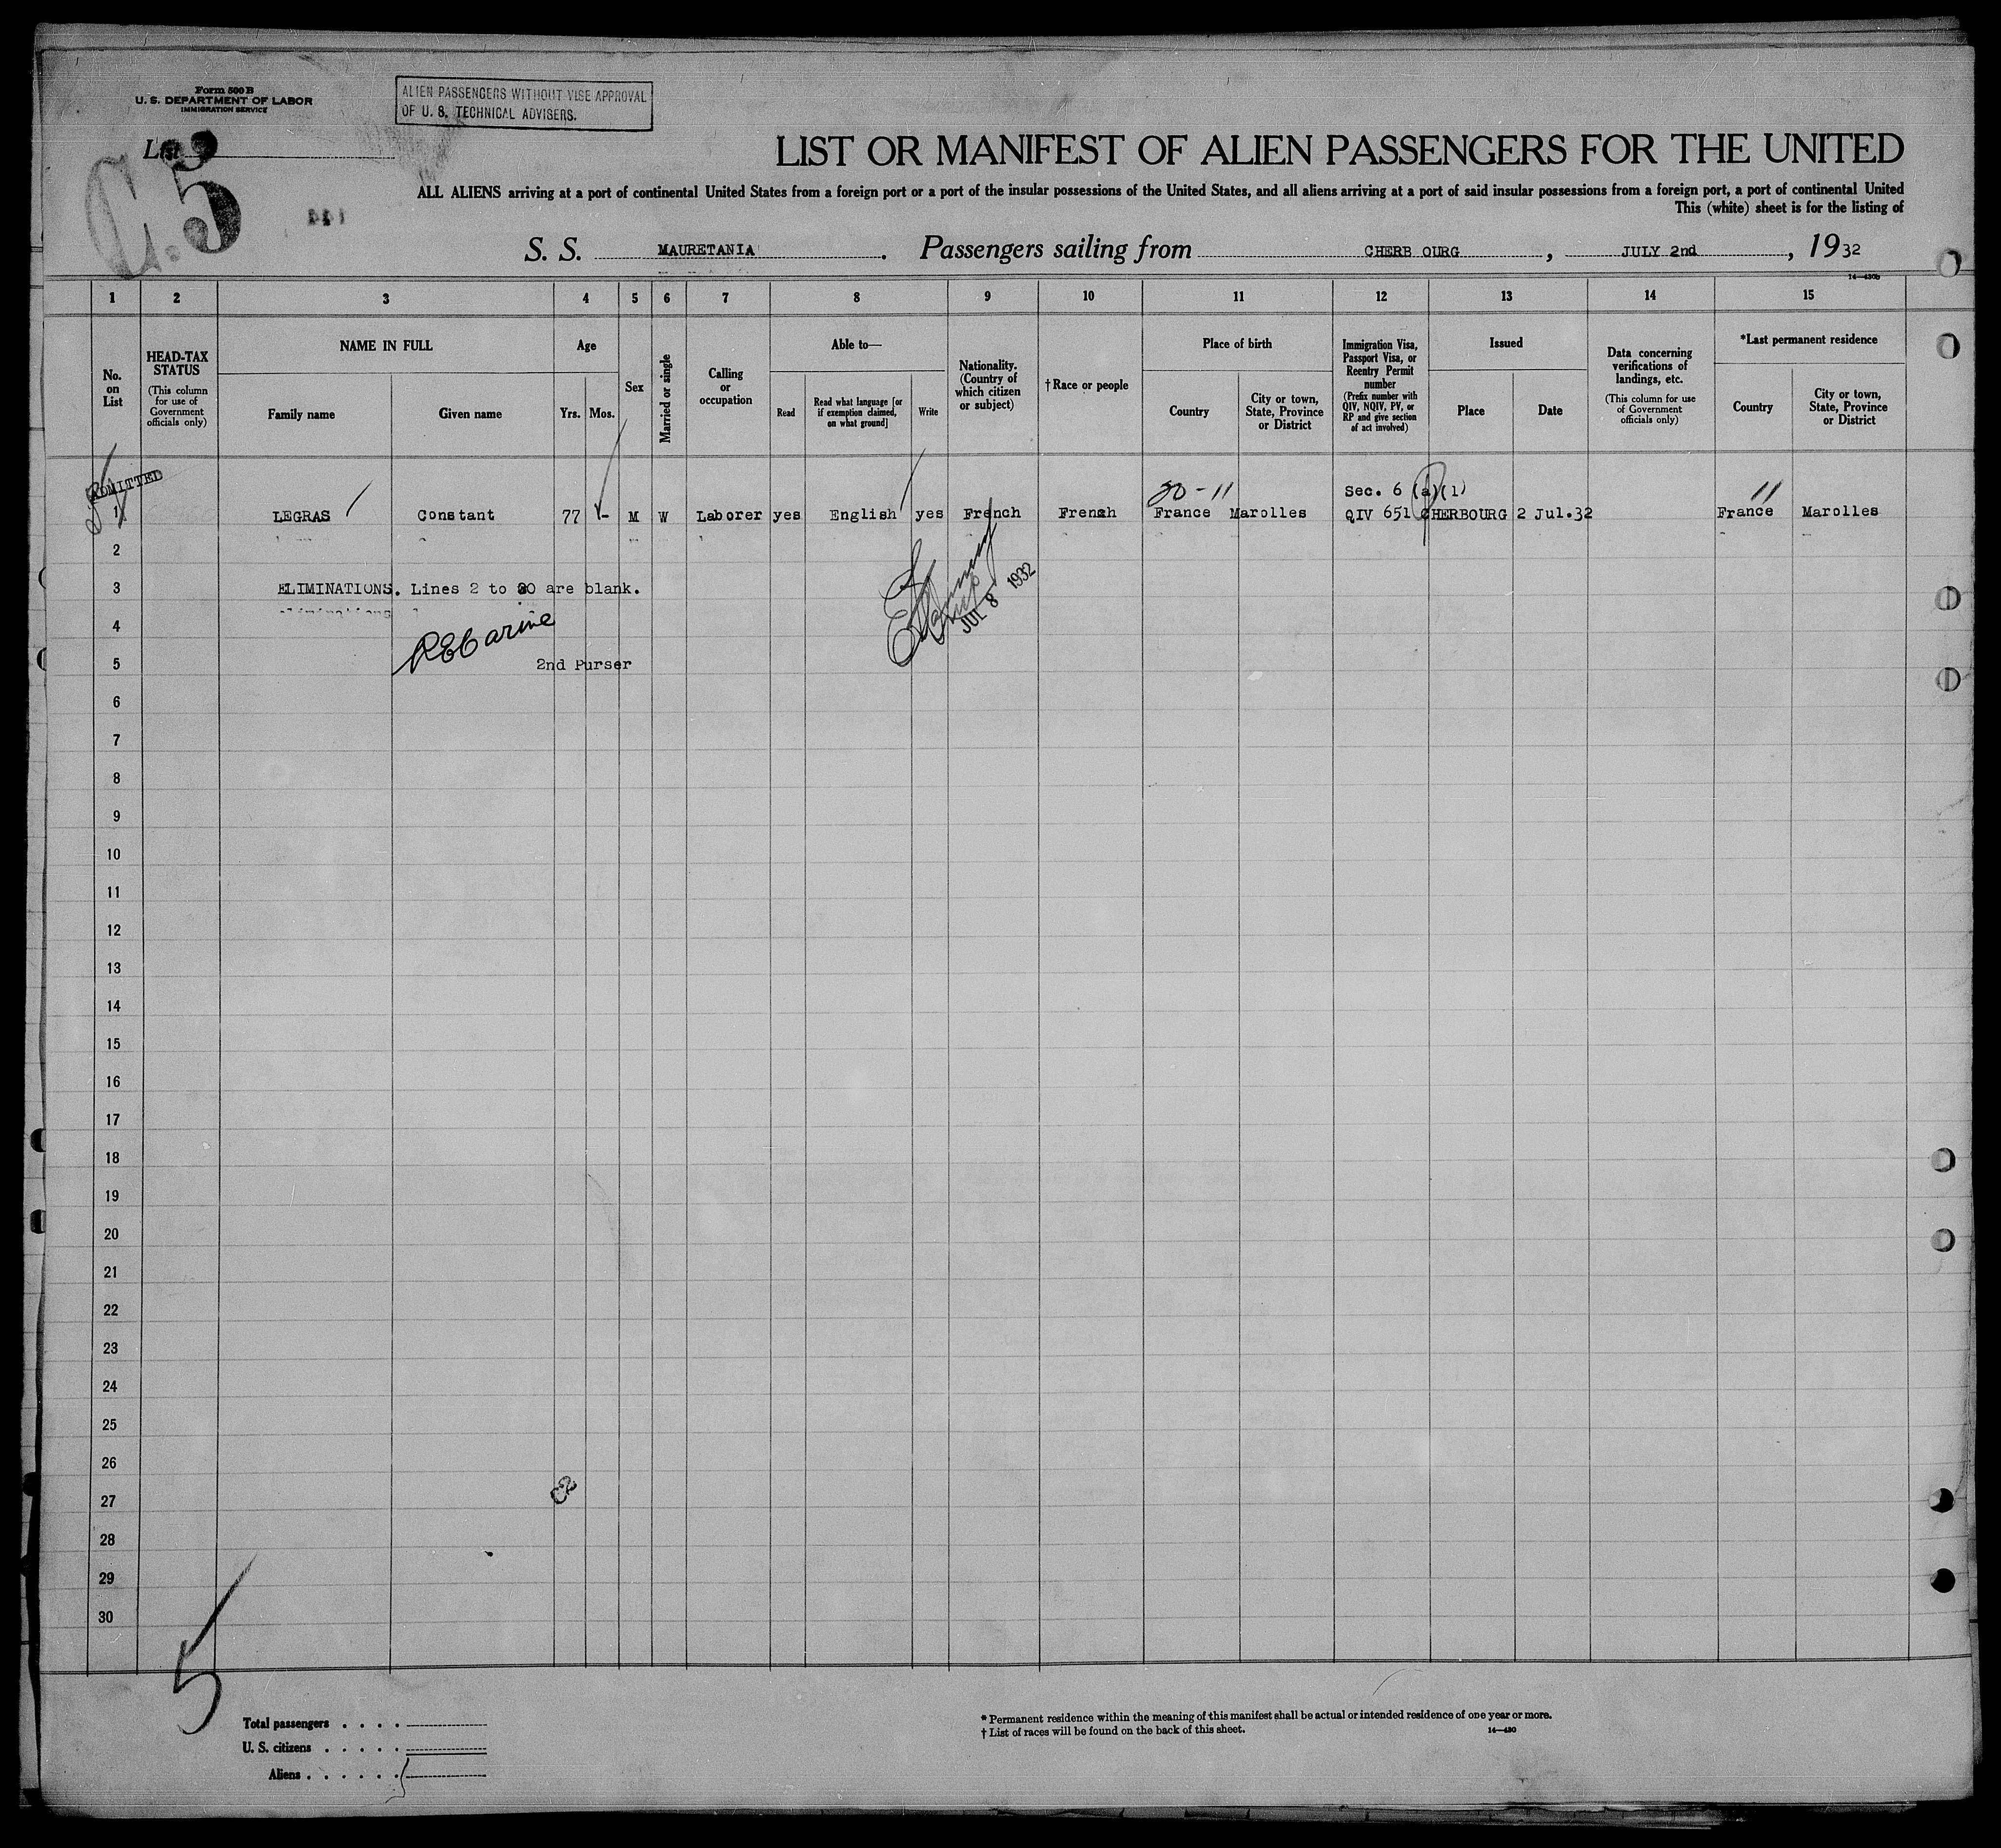 Form 500 B
U. S. DEPARTMENT OF LABOR
IMMIGRATION SERVICE
ALIEN PASSENGERS WITHOUT VISE APPROVAL
OF U. S. TECHNICAL ADVISERS.
List
5
LIST OR MANIFEST OF ALIEN PASSENGERS FOR THE UNITED
ALL ALIENS arriving at a port of continental United States from a foreign port or a port of the insular possessions of the United States, and all aliens arriving at a port of said insular possessions from a foreign port, a port of continental United
This (white) sheet is for the listing of
S. S. MAURETANIA. Passengers sailing from CHERB OURG, JULY 2nd, 1932
14—430b
1 2 3 4 5 6 7 8 9 10 11 12 13 14 15
No. on List
HEAD-TAX STATUS
(This column for use of Government officials only)
NAME IN FULL
Family name
Given name
Age
Yrs. Mos.
Sex
Married or single
Calling or occupation
Able to—
Read
Read what language [or if exemption claimed, on what ground]
Write
Nationality. (Country of which citizen or subject)
†Race or people
Place of birth
Country
City or town, State, Province or District
Immigration Visa, Passport Visa, or Reentry Permit number
(Prefix number with QIV, NQIV, PV, or RP and give section of act involved)
Issued
Place
Date
Data concerning verifications of landings, etc.
(This column for use of Government officials only)
*Last permanent residence
Country
City or town, State, Province or District
ADMITTED
20-11
Sec. 6 (a)(1)
11
1 LEGRAS Constant 77 - M W Laborer yes English yes French French France Marolles QIV 651 CHERBOURG 2 Jul.32 France Marolles
2
3 ELIMINATIONS. Lines 2 to 30 are blank.
JUL 8 1932
4
5 2nd Purser
6
7
8
9
10
11
12
13
14
15
16
17
18
19
20
21
22
23
24
25
26
27
28
29
30
5
Total passengers
U. S. citizens
Aliens
* Permanent residence within the meaning of this manifest shall be actual or intended residence of one year or more.
† List of races will be found on the back of this sheet.
14—430